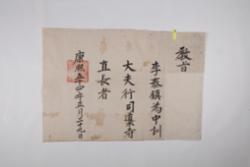 敎旨
李泰鎭爲中訓
大夫行司䆃寺
直長者
康熙五十四年五月二十九日